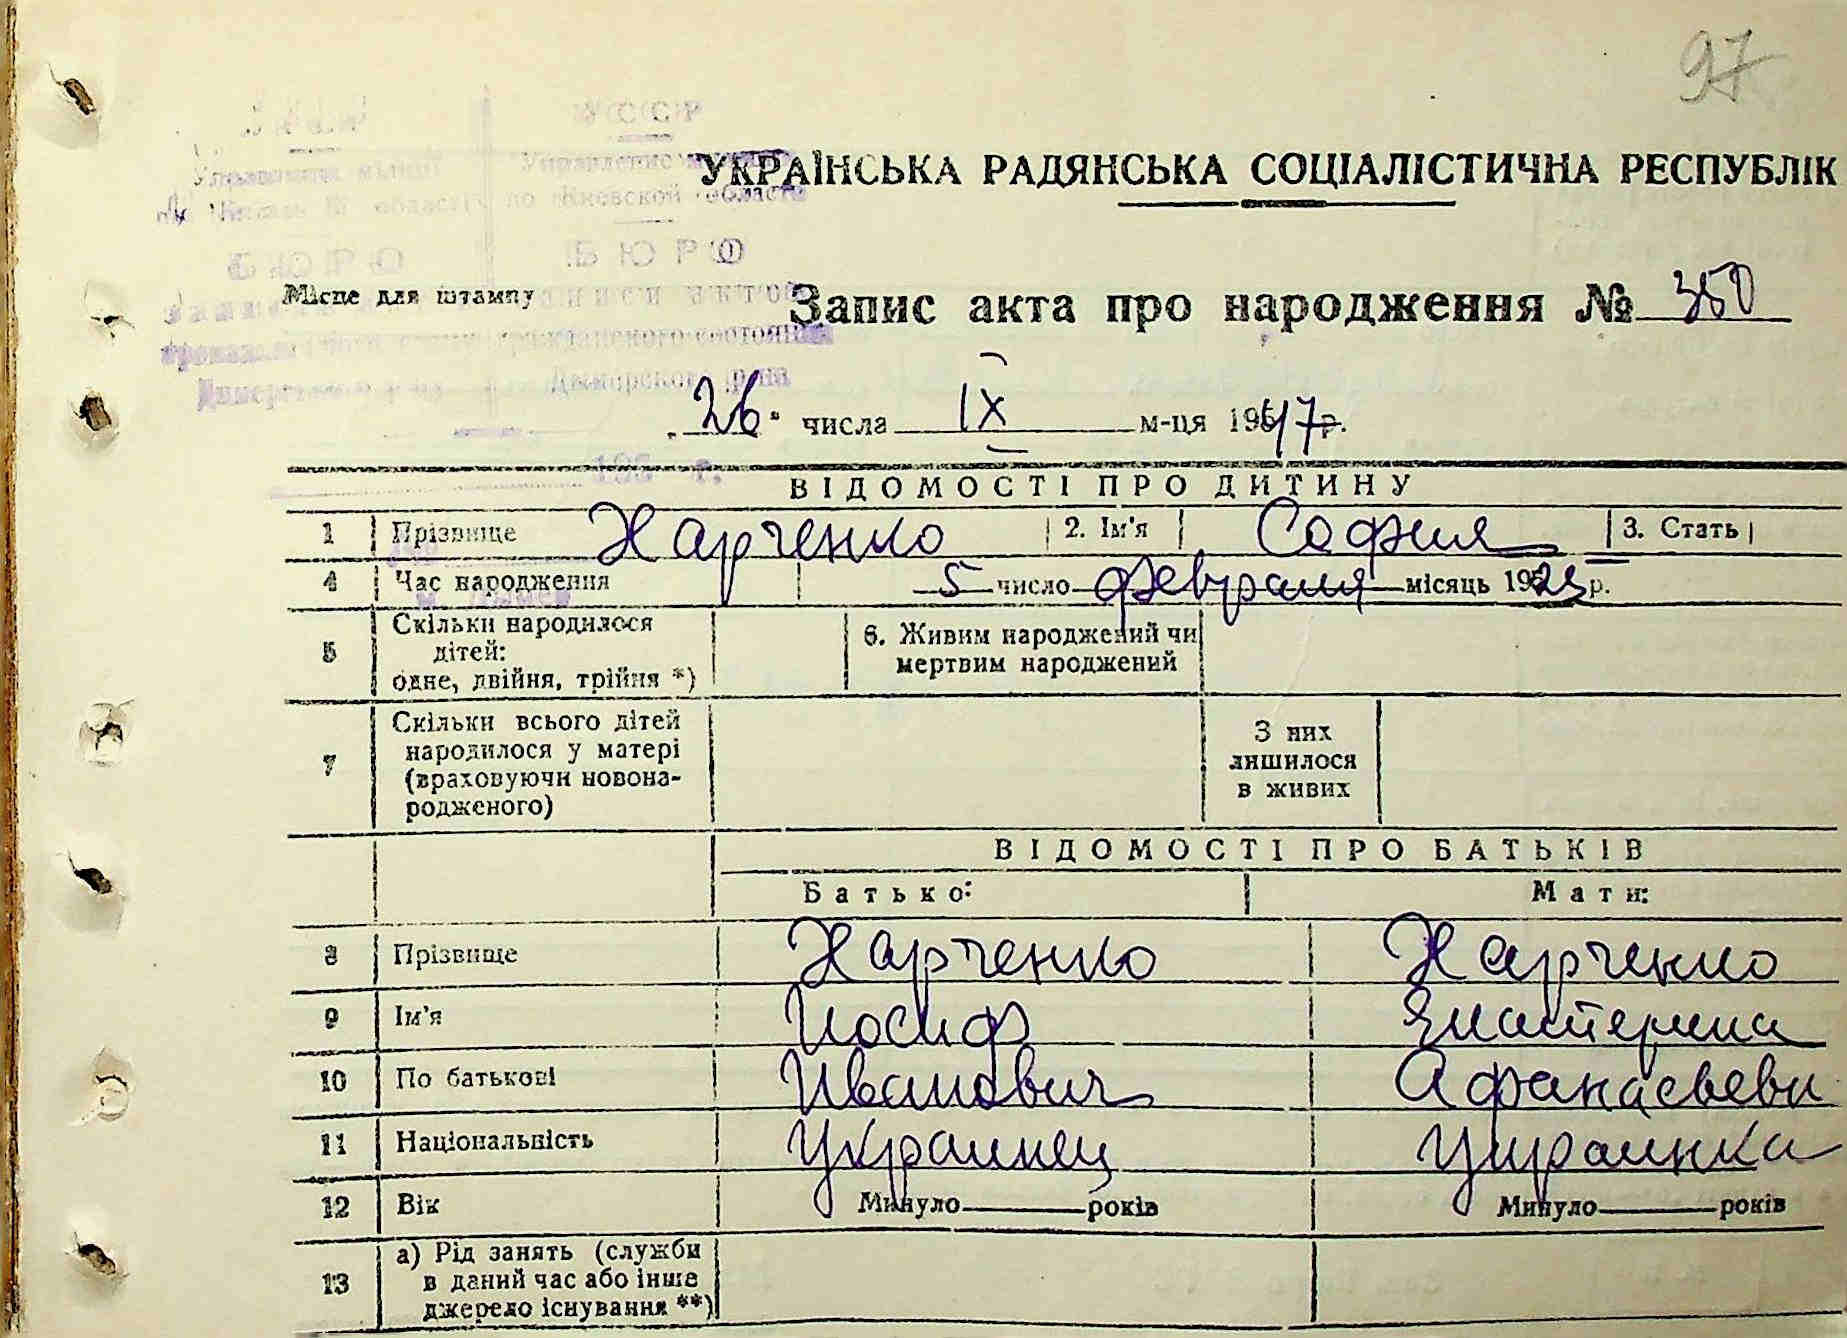 97
УССР
Управление
по Киевской области
БЮРО БЮРО
УКРАЇНСЬКА РАДЯНСЬКА СОЦІАЛІСТИЧНА РЕСПУБЛІК
Місце для штампу
Запис акта про народження № 350
гражданского состояния
Дымерского р-на
26 числа IX м-ця 1947 р.
195 г.
ВІДОМОСТІ ПРО ДИТИНУ
1 Прізвище Харченко 2. Ім'я София 3. Стать
4 Час народження 5 число февраля місяць 1923 р.
5 Скільки народилося
дітей:
одне, двійня, трійня *)
6. Живим народжений чи
мертвим народжений
7 Скільки всього дітей
народилося у матері
(враховуючи новона-
родженого)
З них
лишилося
в живих
ВІДОМОСТІ ПРО БАТЬКІВ
Батько: Мати:
8 Прізвище Харченко Харченко
9 Ім'я Иосиф Екатерина
10 По батькові Иванович Афанасьевн
11 Національність Украинец Украинка
12 Вік Минуло років Минуло років
13 а) Рід занять (служби
в даний час або інше
джерело існування **)